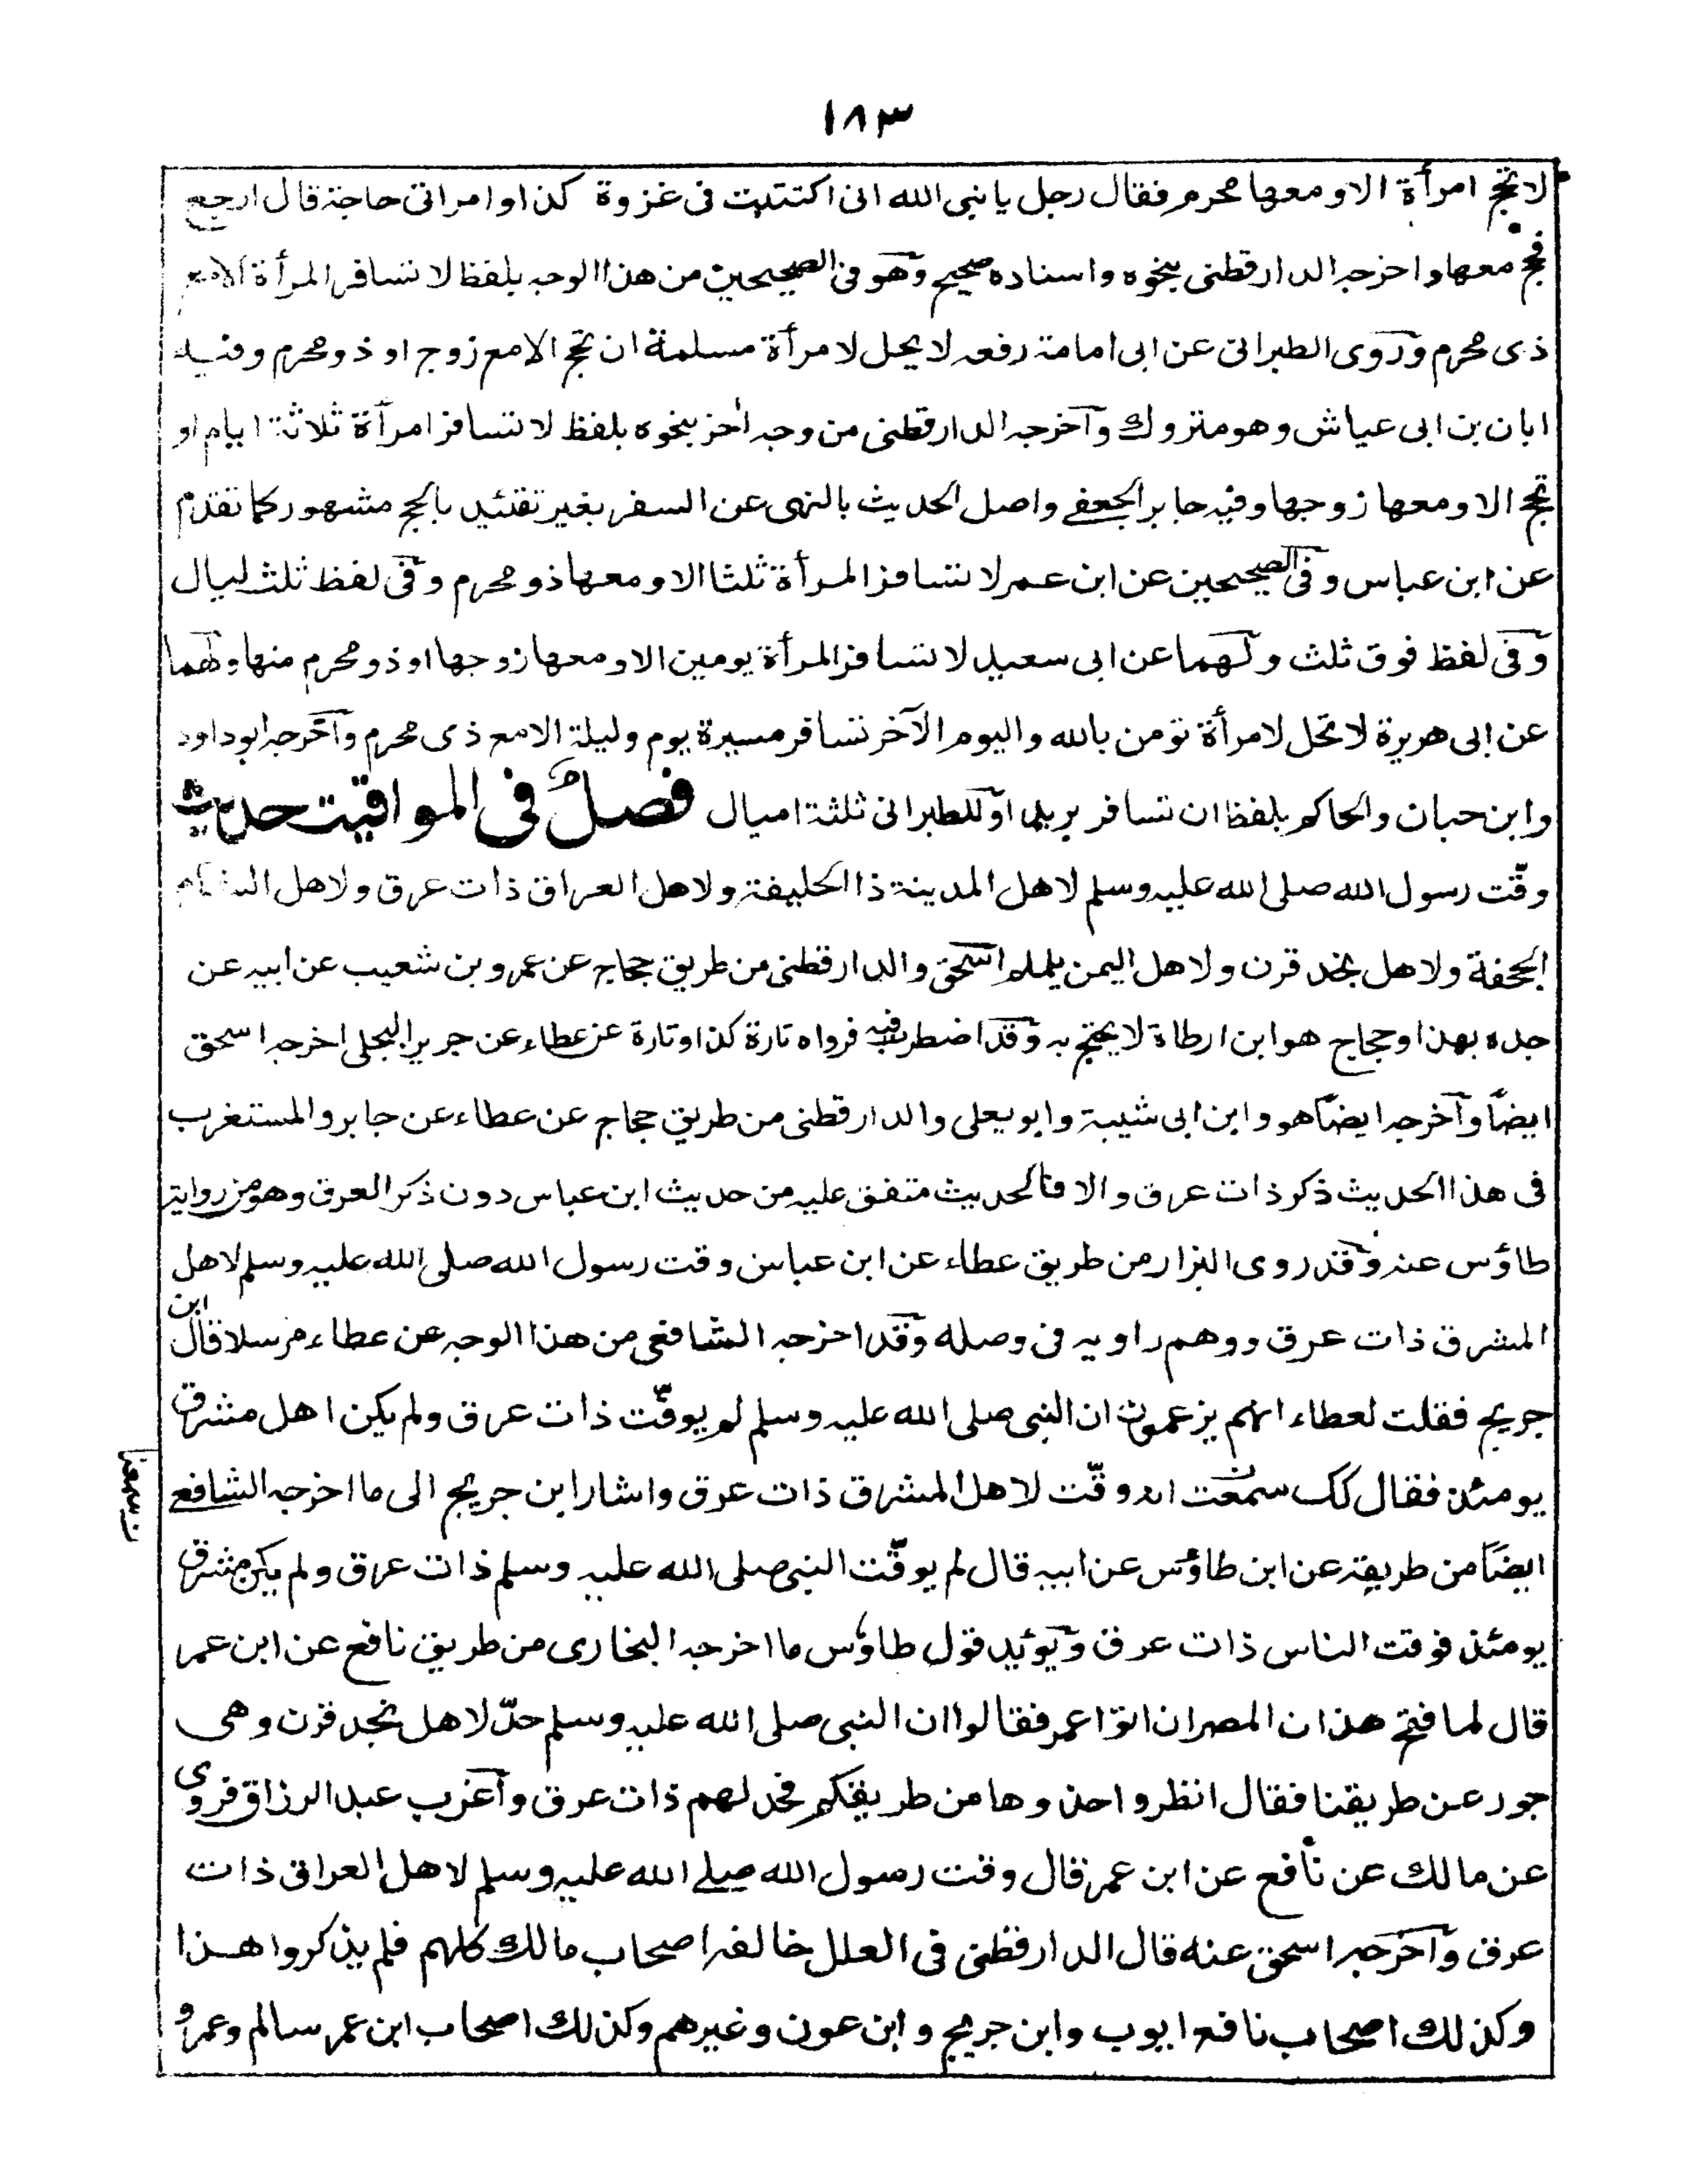 ١٨٣
لا تحج امرأة الا ومعها محرم فقال رجل يا نبى الله انى اكتتبت فى غزوة كذا وامراتى حاجة قال ارجع
فحج معها واخرجه الدارقطنى بنحوه واسناده صحيح وهو فى الصحيحين من هذا الوجه بلفظ لا تسافر المرأة الا مع
ذى محرم وروى الطبرانى عن ابى امامة رفعه لا يحل لامرأة مسلمة ان تحج الا مع زوج او ذو محرم وفيه
ابان بن ابى عياش وهو متروك وآخرجه الدارقطنى من وجه اخر بنحوه بلفظ لا تسافر امرأة ثلاثة ايام او
تحج الا ومعها زوجها وفيه جابر الجعفے واصل الحديث بالنهى عن السفر بغير تقئيد بالحج مشهور كما تقدم
عن ابن عباس وفى الصحيحين عن ابن عمر لا تسافر المرأة ثلثا الا ومعها ذو محرم وفى لفظ ثلث ليال
وفى لفظ فوق ثلث ولهما عن ابى سعيد لا تسافر المرأة يومين الا ومعها زوجها او ذو محرم منها ولهما
عن ابى هريرة لا تحل لامرأة تومن بالله واليوم الآخر تسافر مسيرة يوم وليلة الا مع ذى محرم وآخرجه ابو داود
وابن حبان والحاكم بلفظ ان تسافر بريدا وللطبرانى ثلثة اميال فصلٌ فى المواقيت حديث
وقّت رسول الله صلى الله عليه وسلم لاهل المدينة ذا الحليفة ولاهل العراق ذات عرق ولاهل الشام
الجحفة ولاهل نجد قرن ولاهل اليمن يلملم اسحق والدارقطنى من طريق حجاج عن عمرو بن شعيب عن ابيه عن
جده بهذا وحجاج هو ابن ارطاة لا يحتج به وقد اضطرب فيه فرواه تارة كذا وتارة عن عطاء عن جرير البجلى اخرجه اسحق
ايضاً وآخرجه ايضاً هو وابن ابى شيبة وابو يعلى والدارقطنى من طريق حجاج عن عطاء عن جابر والمستغرب
فى هذا الحديث ذكر ذات عرق والا فالحديث متفق عليه من حديث ابن عباس دون ذكر العرق وهو من رواية
طاؤس عنه وقد روى البزار من طريق عطاء عن ابن عباس وقت رسول الله صلى الله عليه وسلم لاهل
المشرق ذات عرق ووهم راويه فى وصله وقد اخرجه الشافعى من هذا الوجه عن عطاء مرسلا قال ابن
جريج فقلت لعطاء انهم يزعمون ان النبى صلى الله عليه وسلم لم يوقّت ذات عرق ولم يكن اهل مشرق
يومئذ فقال كك سمعت انه وقّت لاهل المشرق ذات عرق واشار ابن جريج الى ما اخرجه الشافعے
ايضًا من طريقه عن ابن طاؤس عن ابيه قال لم يوقّت النبى صلى الله عليه وسلم ذات عرق ولم يكن مشرق
يومئذ فوقت الناس ذات عرق ويوئيد قول طاؤس ما اخرجه البخارى من طريق نافع عن ابن عمر
قال لما فتح هذان المصران اتوا عمر فقالوا ان النبى صلى الله عليه وسلم حدّ لاهل نجد قرن وهى
جور عن طريقنا فقال انظروا حذوها من طريقكم فحد لهم ذات عرق وآغرب عبد الرزاق فروى
عن مالك عن نافع عن ابن عمر قال وقت رسول الله صلے الله عليه وسلم لاهل العراق ذات
عرق وآخرجه اسحق عنه قال الدارقطنى فى العلل خالفه اصحاب مالك كلهم فلم يذكروا هذا
وكذلك اصحاب نافع ايوب وابن جريج وابن عون وغيرهم وكذلك اصحاب ابن عمر سالم وعمرو